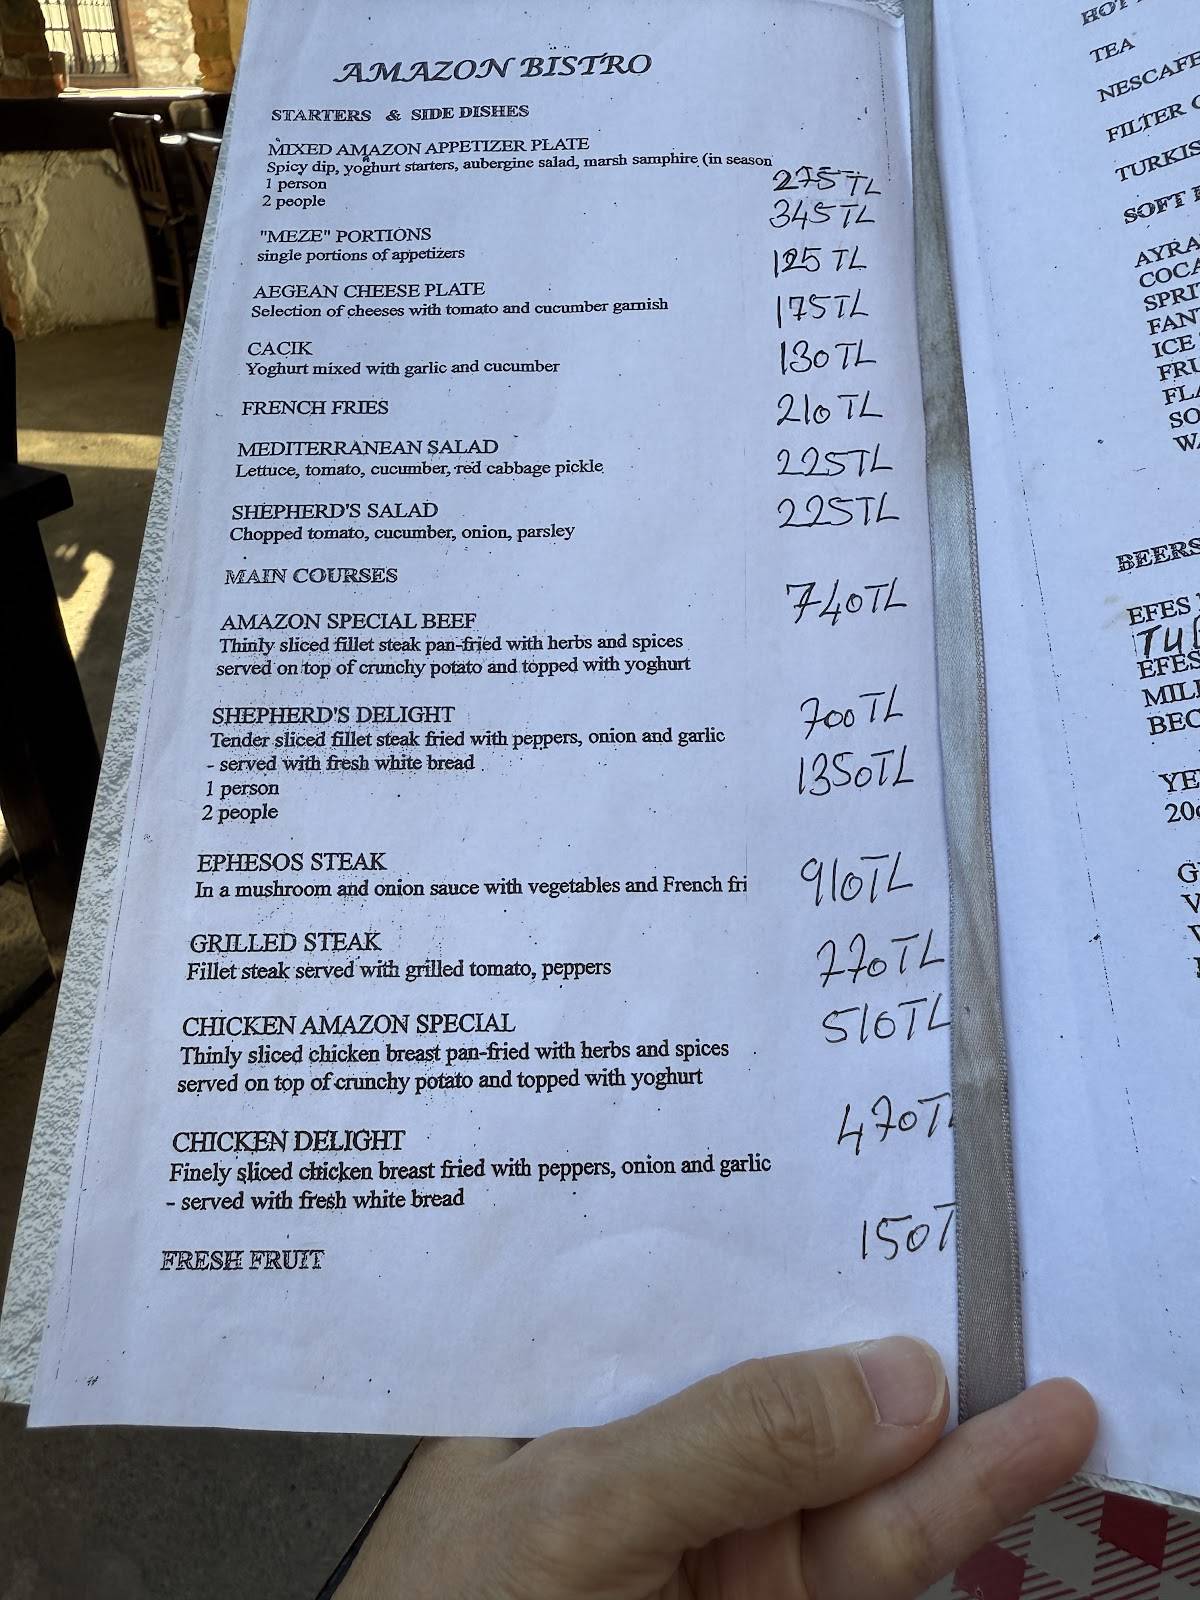 AMAZON BISTRO
STARTERS & SIDE DISHES
MIXED AMAZON APPETIZER PLATE
Spicy dip, yoghurt starters, aubergine salad, marsh samphire (in season
1 person 275 TL
2 people 345 TL
"MEZE" PORTIONS
single portions of appetizers 125 TL
AEGEAN CHEESE PLATE
Selection of cheeses with tomato and cucumber garnish 175 TL
CACIK
Yoghurt mixed with garlic and cucumber 130 TL
FRENCH FRIES 210 TL
MEDITERRANEAN SALAD
Lettuce, tomato, cucumber, red cabbage pickle 225 TL
SHEPHERD'S SALAD
Chopped tomato, cucumber, onion, parsley 225 TL
MAIN COURSES
AMAZON SPECIAL BEEF 740 TL
Thinly sliced fillet steak pan-fried with herbs and spices
served on top of crunchy potato and topped with yoghurt
SHEPHERD'S DELIGHT 700 TL
Tender sliced fillet steak fried with peppers, onion and garlic
- served with fresh white bread 1350 TL
1 person
2 people
EPHESOS STEAK
In a mushroom and onion sauce with vegetables and French fri 910 TL
GRILLED STEAK
Fillet steak served with grilled tomato, peppers 770 TL
CHICKEN AMAZON SPECIAL 510 TL
Thinly sliced chicken breast pan-fried with herbs and spices
served on top of crunchy potato and topped with yoghurt
CHICKEN DELIGHT 470 TL
Finely sliced chicken breast fried with peppers, onion and garlic
- served with fresh white bread
FRESH FRUIT 150 T
HOT
TEA
NESCAFE
FILTER
TURKIS
SOFT
AYRA
COCA
SPRI
FAN
ICE
FRU
FLA
SO
WA
BEERS
EFES
TU
EFES
MIL
BEC
YE
20
G
V